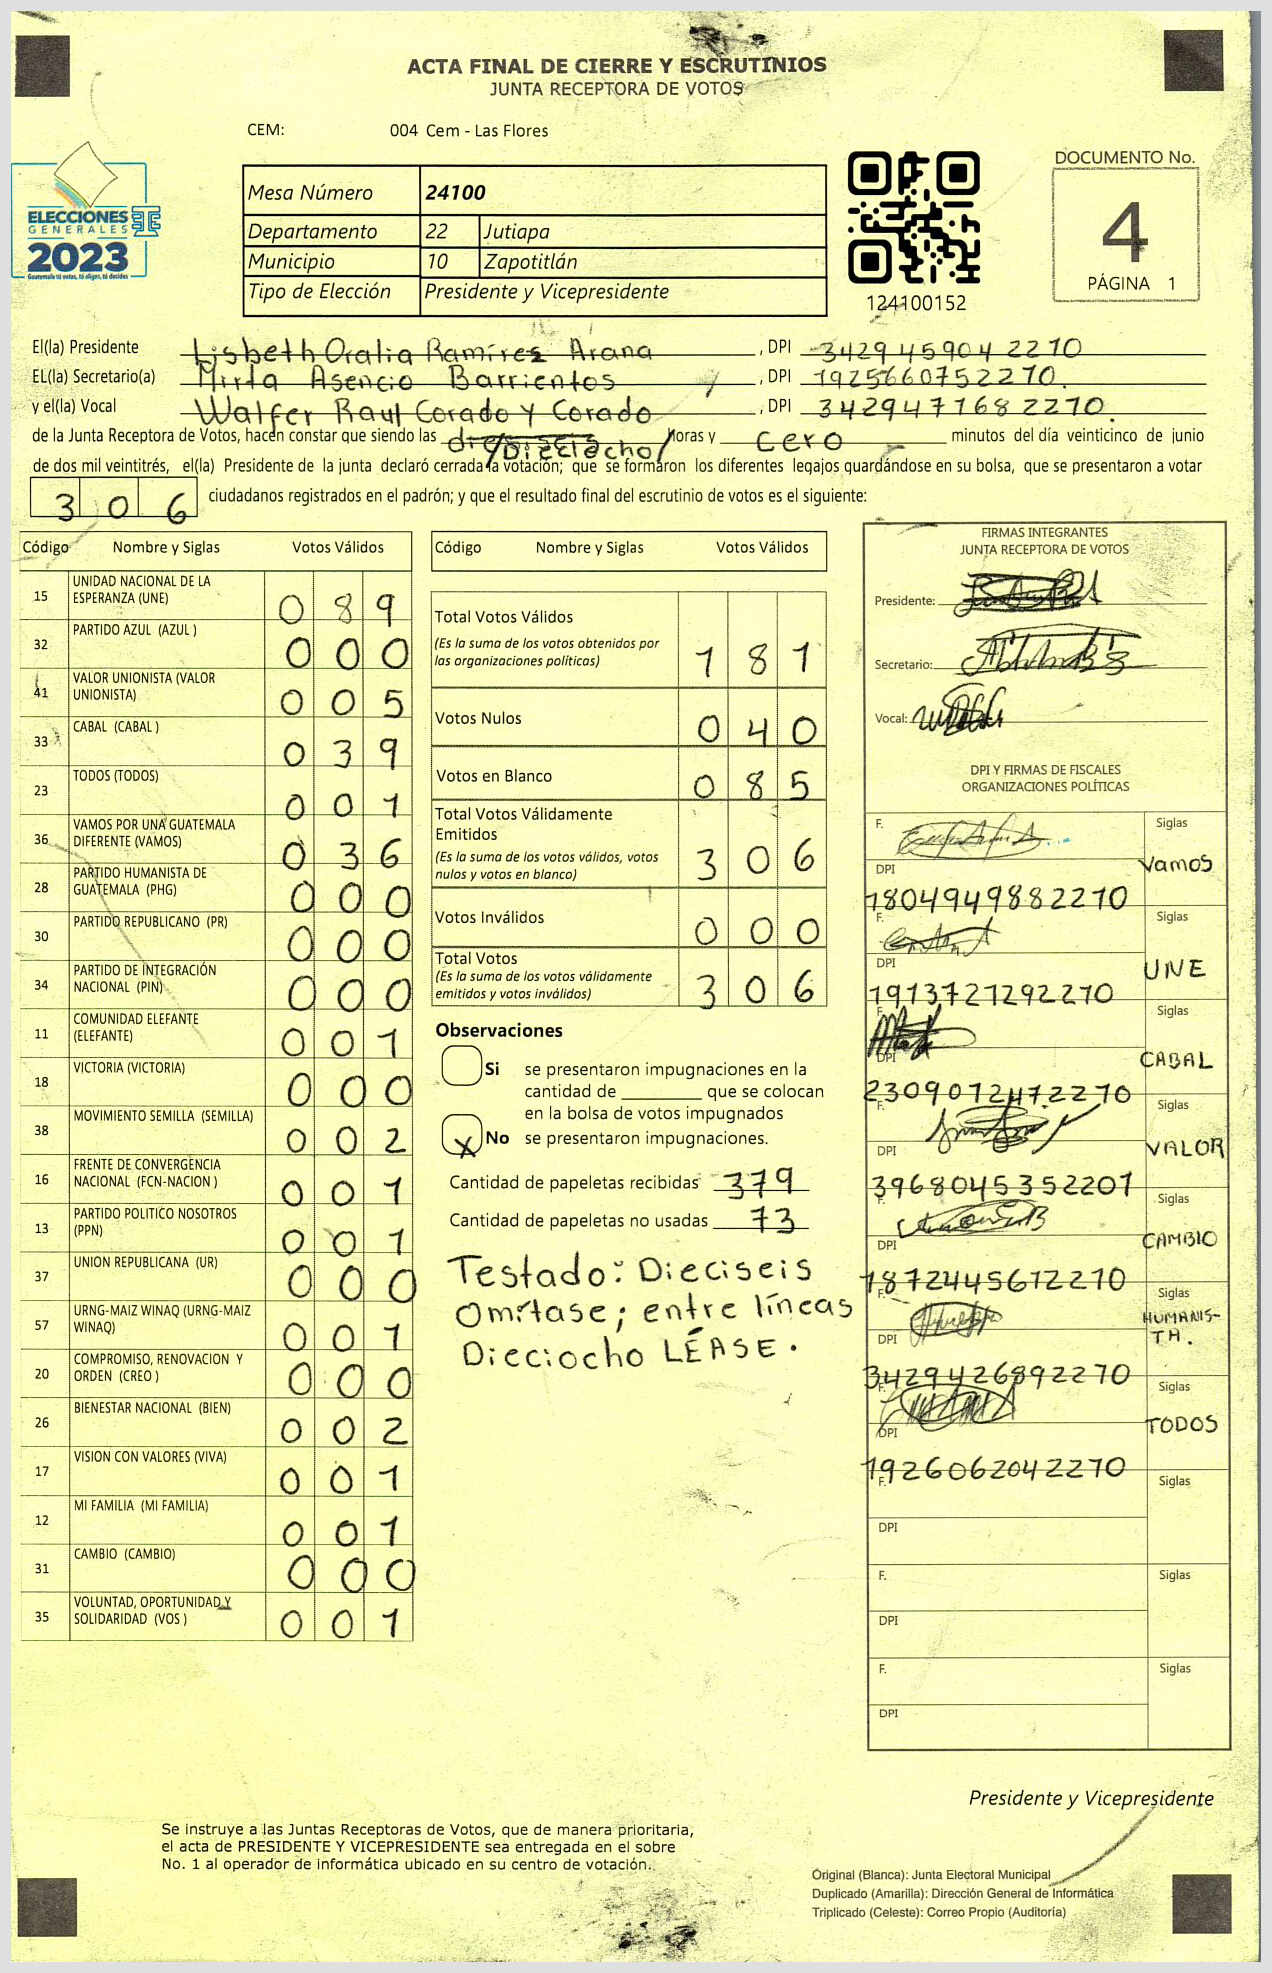 ACTA FINAL DE CIERRE Y ESCRUTINIOS
JUNTA RECEPTORA DE VOTOS
CEM: 004 Cem - Las Flores
ELECCIONES
GENERALES
2023
Guatemala tú votas, tú eliges, tú decides
Mesa Número 24100
Departamento 22 Jutiapa
Municipio 10 Zapotitlán
Tipo de Elección Presidente y Vicepresidente
124100152
DOCUMENTO No.
4
PÁGINA 1
El(la) Presidente Lisbeth Oralia Ramírez Arana, DPI 3429459042270
EL(la) Secretario(a) Mirta Asencio Barrientos, DPI 1925660752270.
y el(la) Vocal Walfer Raul Corado y Corado, DPI 3429471682270.
de la Junta Receptora de Votos, hacen constar que siendo las dieciseis /Dieciocho/ horas y cero minutos del día veinticinco de junio
de dos mil veintitrés, el(la) Presidente de la junta declaró cerrada la votación; que se formaron los diferentes legajos guardándose en su bolsa, que se presentaron a votar
306 ciudadanos registrados en el padrón; y que el resultado final del escrutinio de votos es el siguiente:
Código Nombre y Siglas Votos Válidos
15 UNIDAD NACIONAL DE LA
ESPERANZA (UNE) 089
32 PARTIDO AZUL (AZUL ) 000
41 VALOR UNIONISTA (VALOR
UNIONISTA) 005
33 CABAL (CABAL ) 039
23 TODOS (TODOS) 001
36 VAMOS POR UNA GUATEMALA
DIFERENTE (VAMOS) 036
28 PARTIDO HUMANISTA DE
GUATEMALA (PHG) 000
30 PARTIDO REPUBLICANO (PR) 000
34 PARTIDO DE INTEGRACIÓN
NACIONAL (PIN) 000
11 COMUNIDAD ELEFANTE
(ELEFANTE) 001
18 VICTORIA (VICTORIA) 000
38 MOVIMIENTO SEMILLA (SEMILLA) 002
16 FRENTE DE CONVERGENCIA
NACIONAL (FCN-NACION ) 001
13 PARTIDO POLITICO NOSOTROS
(PPN) 001
37 UNION REPUBLICANA (UR) 000
57 URNG-MAIZ WINAQ (URNG-MAIZ
WINAQ) 001
20 COMPROMISO, RENOVACION Y
ORDEN (CREO ) 000
26 BIENESTAR NACIONAL (BIEN) 002
17 VISION CON VALORES (VIVA) 001
12 MI FAMILIA (MI FAMILIA) 001
31 CAMBIO (CAMBIO) 000
35 VOLUNTAD, OPORTUNIDAD Y
SOLIDARIDAD (VOS ) 001
Código Nombre y Siglas Votos Válidos
Total Votos Válidos
(Es la suma de los votos obtenidos por
las organizaciones políticas) 181
Votos Nulos 040
Votos en Blanco 085
Total Votos Válidamente
Emitidos
(Es la suma de los votos válidos, votos
nulos y votos en blanco) 306
Votos Inválidos 000
Total Votos
(Es la suma de los votos válidamente
emitidos y votos inválidos) 306
Observaciones
Si se presentaron impugnaciones en la
cantidad de ________ que se colocan
en la bolsa de votos impugnados
X No se presentaron impugnaciones.
Cantidad de papeletas recibidas 379
Cantidad de papeletas no usadas 73
Testado: Dieciseis
Omítase; entre líneas
Dieciocho LÉASE.
FIRMAS INTEGRANTES
JUNTA RECEPTORA DE VOTOS
Presidente:
Secretario:
Vocal:
DPI Y FIRMAS DE FISCALES
ORGANIZACIONES POLÍTICAS
F. Siglas
DPI Vamos
1804949882270
F. Siglas
DPI UNE
1913721292270
F. Siglas
DPI CABAL
2309072472270
F. Siglas
DPI VALOR
3968045352201
F. Siglas
DPI CAMBIO
1872445612270
F. Siglas
DPI HUMANIS-
TA.
3429426892270
F. Siglas
DPI TODOS
1926062042270
F. Siglas
DPI
F. Siglas
DPI
F. Siglas
DPI
Presidente y Vicepresidente
Se instruye a las Juntas Receptoras de Votos, que de manera prioritaria,
el acta de PRESIDENTE Y VICEPRESIDENTE sea entregada en el sobre
No. 1 al operador de informática ubicado en su centro de votación.
Original (Blanca): Junta Electoral Municipal
Duplicado (Amarilla): Dirección General de Informática
Triplicado (Celeste): Correo Propio (Auditoría)